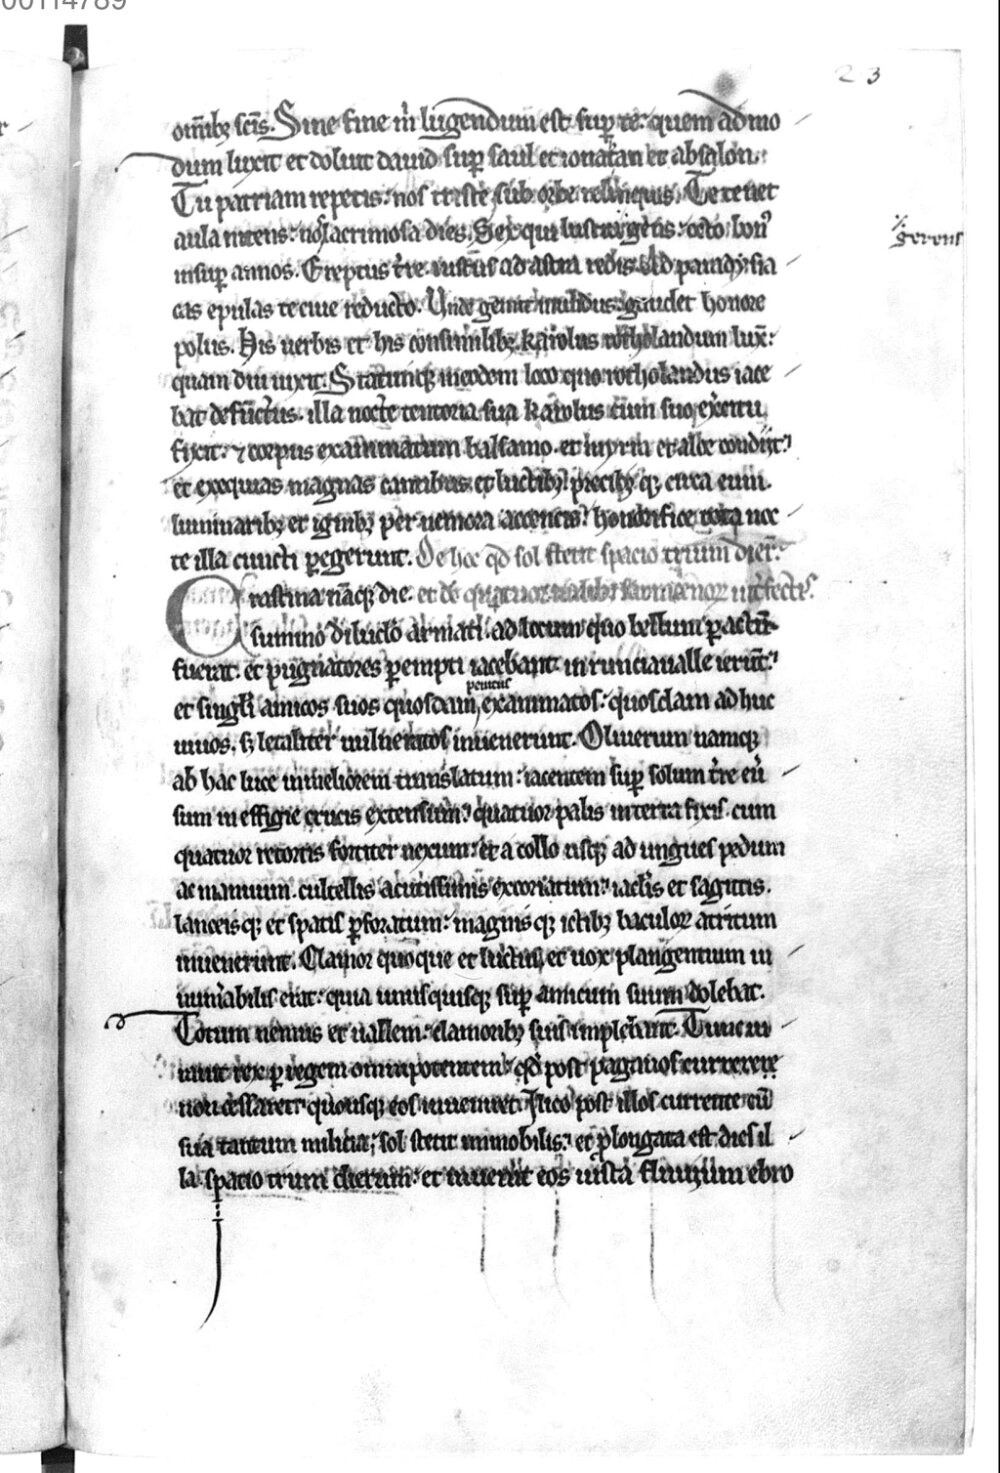 00114789
23
om̄ibꝫ sc̄is. Sine fine m̊ lugendum est sup̱ te: quem ad mo
dum luxit et doluit dauid sup̱ saul et ionatan et absalon.
Tu patriam repetis: nos triste sub orbe relinquis. Te tenet
aula nitens: nos lacrimosa dies. Sex qui lustra gerens: octo bon᷒
gerens
insup̱ annos. Ereptus tr̄e iustus ad astra redis. Ad paradysia
cas epulas te ciue reducto. Vnde gemit mundus: gaudet honore
polus. His uerbis et his consimilibꝫ karolus rotholandum lux̄:
quam diu uixit. Statimqꝫ in eodem loco quo rotholandus iace
bat defūctus. illa nocte tentoria sua karolus cum suo ex̄citu
fixit: ⁊ corpus exanimatum balsamo. et myrra et aloe condiit:
et exequias magnas cantibus et luctibꝫ precibꝫ qꝫ circa eum.
luminaribꝫ et ignibꝫ per nemora accencis: honorifice tota noc
te illa cuncti ꝑegerunt. De hoc qd̄ sol stetit spacio trium dierꝫ
Crastina nāqꝫ die. et de quatuor milibꝫ sarracenorꝫ int̄fectis.
summo diluclo armati. ad locum quo bellum ꝑactū
fuerat. et pugnatores ꝑempti iacebant in runciaualle ierūt:
penitus
et singli amicos suos quosdam exanimatos: quosdam ad huc
uiuos. sꝫ letaliter uulneratos inuenerunt. Oliuerum namqꝫ
ab hac luce in meliorem translatum: iacentem sup̱ solum tr̄e eū
sum in effigie crucis extensum: quatuor palis in terra fixis. cum
quatuor retortis fortiter nexum: et a collo usqꝫ ad ungues pedum
ac manuum. cultellis acutissimis excoriatum: iaclis et sagittis.
lanceisqꝫ et spatis ꝑforatum: magnisqꝫ ictibꝫ baculorꝫ attritum
inuenerunt. Clamor quoque et luctus et uox plangentium in
num̄abilis erat: quia unusquisqꝫ sup̱ amicum suum dolebat.
Totum nemus et uallem: clamoribꝫ suis implebant. Tunc iu
rauit rex ꝑ regem omnipotentem: qd̄ post paganos currere
non cessaret quousqꝫ eos inueniret. Ilico post illos currente eū
sua tantum milicia; sol stetit immobilis: et ꝓlongata est dies il
la spacio trium dierum: et inuenit eos iuxta fluuium ebro